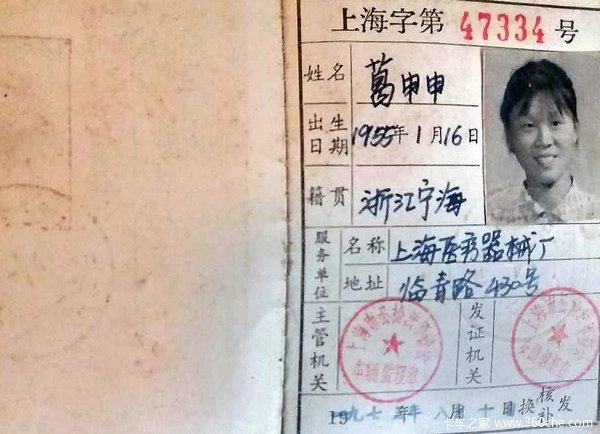 上海字第 47334 号
姓名 葛申申
出生日期 1955年1月16日
籍贯 浙江宁海
服务单位
名称 上海医疗器械厂
地址 临青路430号
主管机关
发证机关
换核补发
卡车之家 www.360che.com